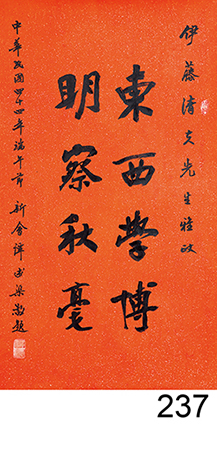 伊藤清夫先生雅政
東西學博
明察秋毫
中華民國四十四年端午節 新會譚 梁敬題
237